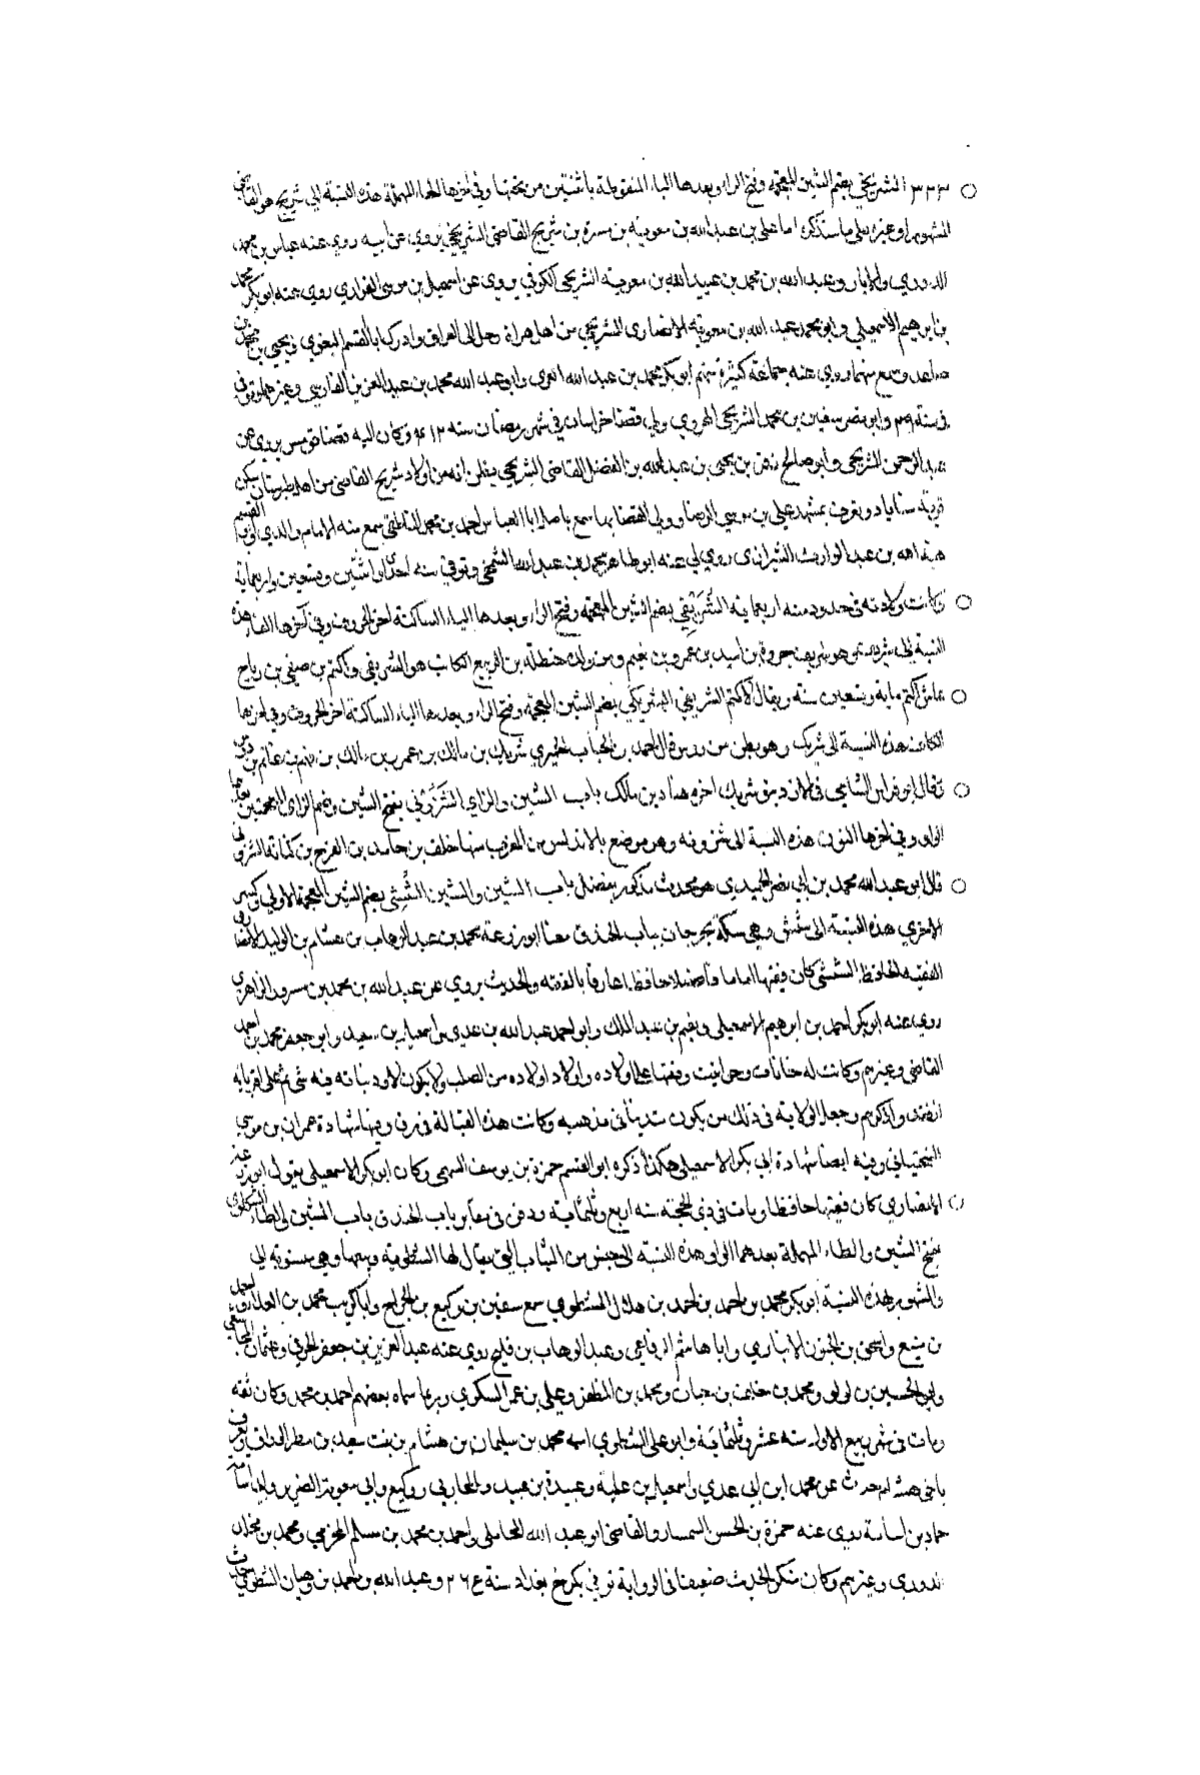 ٣٣٣ الشريحي بضم الشين المعجمة وفتح الراء وبعدها الياء المنقوطة باثنتين من تحتها وفي اخرها الحاء المهملة هذه النسبة الى شريح هو القاضي
المشهور او غيره على ما سنذكره اما على بن عبد الله بن معوية بن ميسرة بن شريح القاضي الشريحي يروي عن ابيه روى عنه عباس بن محمد
الدوري والابار وعبد الله بن محمد بن عبيد الله بن معوية الشريحي الكوفي يروي عن اسمعيل بن موسى الفزاري روى عنه ابو بكر محمد
بن ابرهيم الاسمعيلي وابو محمد عبد الله بن معوية الانصارى الشريحي من اهل هراة رحل الى العراق وادرك ابا القسم البغوي ويحيى بن محمد بن
صاعد وسمع منهما روى عنه جماعة كثيرة منهم ابو بكر محمد بن عبد الله العمرى وابو عبد الله محمد بن عبد العزيز الفارسي وغيرهما توفي
في سنة ٣٩٠ وابو نصر سفين بن محمد الشريحي الهروي ولي قضا خراسان في شهر رمضان سنه وكان اليه قضا قومس يروي عن
عبد الرحمن الشريحي وابو صالح بن يحيى بن عبد الله بن الفضل القاضي الشريحي يظن انه من اولاد شريح القاضى من اهل طبرستان سكن
قرية سناباد ويعرف بمشهد علي بن موسى الرضا وولي القضا بها سمع بامل ابا العباس احمد بن محمد الناطقي سمع منه الامام والدي ابو القسم
هبة الله بن عبد الوارث الشيرازى روى لي عنه ابو طاهر محمد بن عبد الله الشيحي وتوفي سنه احدى او اثنتين وتسعين واربعماية
وكانت ولادته في حدود سنه اربعماية الشُّرَيفي بضم الشين المعجمة وفتح الراء وبعدها الياء الساكنة اخر الحروف وفي اخرها الفاء هذه
النسبة الى شريف وهو شريف بن جروة بن اسيد بن عمرو بن تميم ومن ولده حنظلة بن الربيع الكاتب هو الشريفي واكثم بن صيفي بن رباح
عاش اكثم ماية وتسعين سنه ويقال لاكثم الشريفي الشريكي بضم الشين المعجمة وفتح الراء وبعدها الياء الساكنة اخر الحروف وفي اخرها
الكاف هذه النسبة الى شريك وهو بطن من دوس قال احمد بن الحباب الحميري شريك بن مالك بن عمرو بن مالك بن فهم بن غانم بن دوس
وقال ابو فراس السامي في الازد بنو شريك اخوه هناة بن مالك باب الشين والزاي الشَّزُونى بفتح الشين وضم الزاى المعجمتين بعدهما
الواو وفي اخرها النون هذه النسبة الى شزونه وهو موضع بالاندلس من المغرب منها خلف بن حامد بن الفرج بن كنانة الشزوني
قال ابو عبد الله محمد بن ابي نصر الحميدي هو محدث مذكور بفضل باب الشين والشين الشُشِى بضم الشين المعجمة الاولى وكسر
الاخرى هذه النسبة الى شش وهي سكة بجرجان بباب الخندق منها ابو زرعة محمد بن عبد الوهاب بن هشام بن الوليد الانصاري
الفقيه الحافظ الششى كان فقيها اماما فاضلا حافظا عارفا بالفقه والحديث يروي عن عبد الله بن محمد بن مسرور الزاهري
روى عنه ابو بكر احمد بن ابرهيم الاسمعيلي ونعيم بن عبد الملك وابو احمد عبد الله بن عدي واسمعيل بن سعيد وابو جعفر محمد بن احمد
القاضي وغيرهم وكانت له خانات وحوانيت وقفها على اولاده واولاد اولاده من الصلب ولا يكون لاولاد بناته فيه شى ثم على اقربايه
الفقراء واذكرهم وجعل الولاية في ذلك من يكون سنيا في مذهبه وكانت هذه القبالة في رق وفيها شهادة عمران بن موسى
السختياني وفيه ايضا شهادة ابي بكر الاسمعيلي هكذا ذكره ابو القسم حمزة بن يوسف السهمي وكان ابو بكر الاسمعيلي يقول ابو زرعة
الانصاري كان فقيها حافظا ومات في ذي الحجة سنه اربع وثلثماية ودفن في مقابر باب الخندق باب الشين والطاء الشطوي
بفتح الشين والطاء المهملة بعدهما الواو هذه النسبة الى جنس من الثياب التي يقال لها الشطوية وبيعها وهي منسوبة الى
والمشهور بهذه النسبة ابو بكر محمد بن احمد بن احمد بن هلال الشطوي سمع سفين بن وكيع بن الجراح وابا كريب محمد بن العلاء واحمد
بن منيع واسحق بن الانباري وابا هاشم الرفاعي وعبد الوهاب بن فليح روى عنه عبد العزيز بن جعفر الخرقي وعثمان
وابو الحسين بن لولو ومحمد بن خليف بن جيان ومحمد بن المظفر وعلي بن عمر السكري وربما سماه بعضهم احمد بن محمد وكان ثقه
ومات في شهر ربيع الاول سنه عشر وثلثماية وابو علي الشطوي اسمه محمد بن سليمان بن هشام بن بنت سعيد بن مطر الوراق ويعرف
باخي هشام حدث عن محمد ابن ابي عدي واسمعيل بن علية وعبيدة بن حميد والمحاربي ووكيع وابي معوية الضرير وابي اسامة
حماد بن اسامة روى عنه حمزة بن الحسن السمسار والقاضي ابو عبد الله المحاملي واحمد بن محمد بن مسلم المخرمي ومحمد بن مخلد
الدوري وغيرهم وكان منكر الحديث ضعيفا في الرواية توفي بكرخ بغداد سنة وعبد الله بن احمد بن وهبان الشطوي حدث